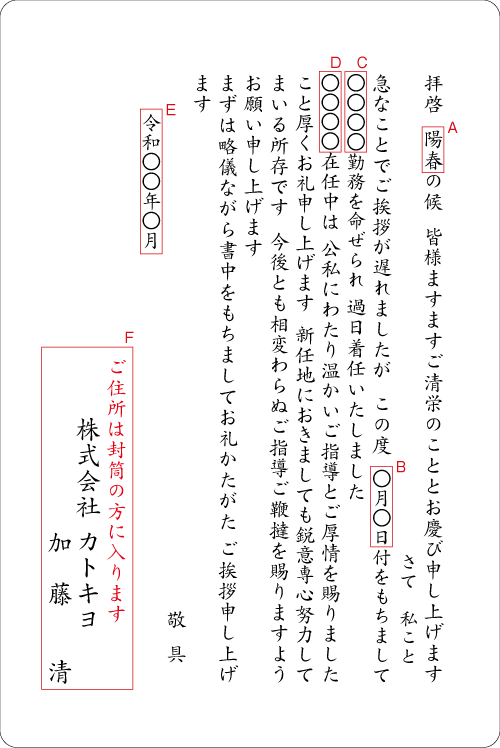 拝啓 陽春の候 皆様ますますご清栄のこととお慶び申し上げます
さて 私こと
急なことでご挨拶が遅れましたが この度 〇月〇日付をもちまして
〇〇〇〇勤務を命ぜられ 過日着任いたしました
〇〇〇〇在任中は 公私にわたり温かいご指導とご厚情を賜りました
こと厚くお礼申し上げます 新任地におきましても鋭意専心努力して
まいる所存です 今後とも相変わらぬご指導ご鞭撻を賜りますよう
お願い申し上げます
まずは略儀ながら書中をもちましてお礼かたがた ご挨拶申し上げ
ます
敬具
令和〇〇年〇月
ご住所は封筒の方に入ります
株式会社 カトキヨ
加藤 清
A
B
C
D
E
F